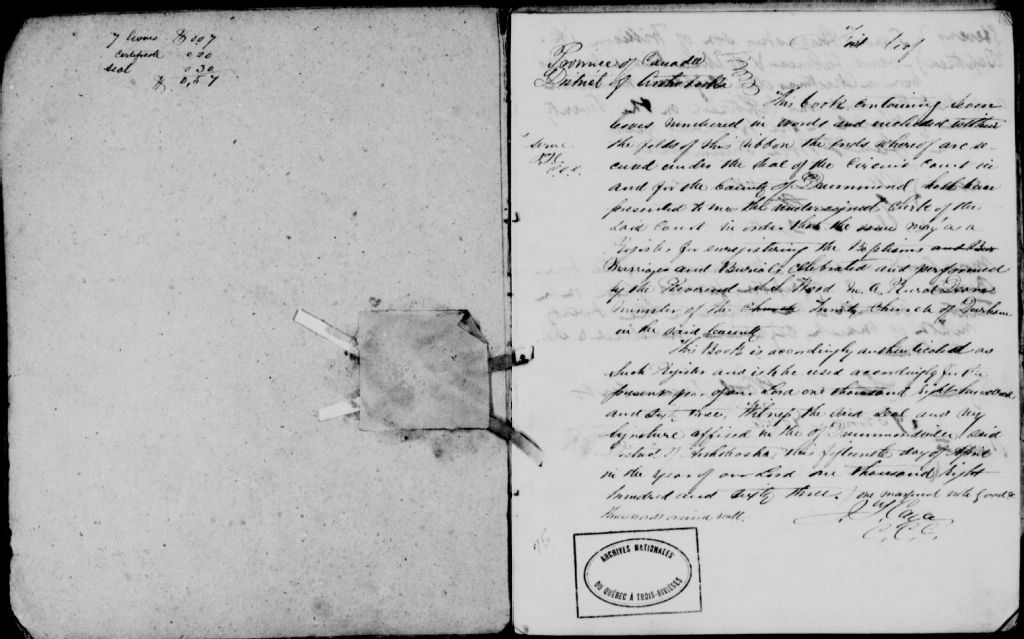 7 leaves $0.07
Certificate 0.20
Seal 0.30
$0.57
First
Province of Canada
District of Arthabaska
This book containing seven
leaves numbered in words and included within
the folds of this ribbon the ends whereof are se-
cured under the seal of the Circuit Court in
and for the County of Drummond hath been
presented to me the undersigned Clerk of the
said Court in order that the same may as a
Register for enregistering the Baptisms and Bur
Marriages and Burials celebrated and performed
by the Reverend Wood M. A. Rural Dean
minister of the Church Trinity Church of Durham
in the said County
This Book is accordingly authenticated as
such Register and is to be used accordingly for the
present year of our Lord one thousand Eight hundred
and Sixty three, Witness the said seal and my
signature affixed in the of Drummondville said
District of Arthabaska, this fifteenth day of April
in the year of our Lord one thousand Eight
hundred and sixty three. one marginal note good &
three words erased null.
C. C. C.
ARCHIVES NATIONALES
DU QUÉBEC À TROIS-RIVIÈRES